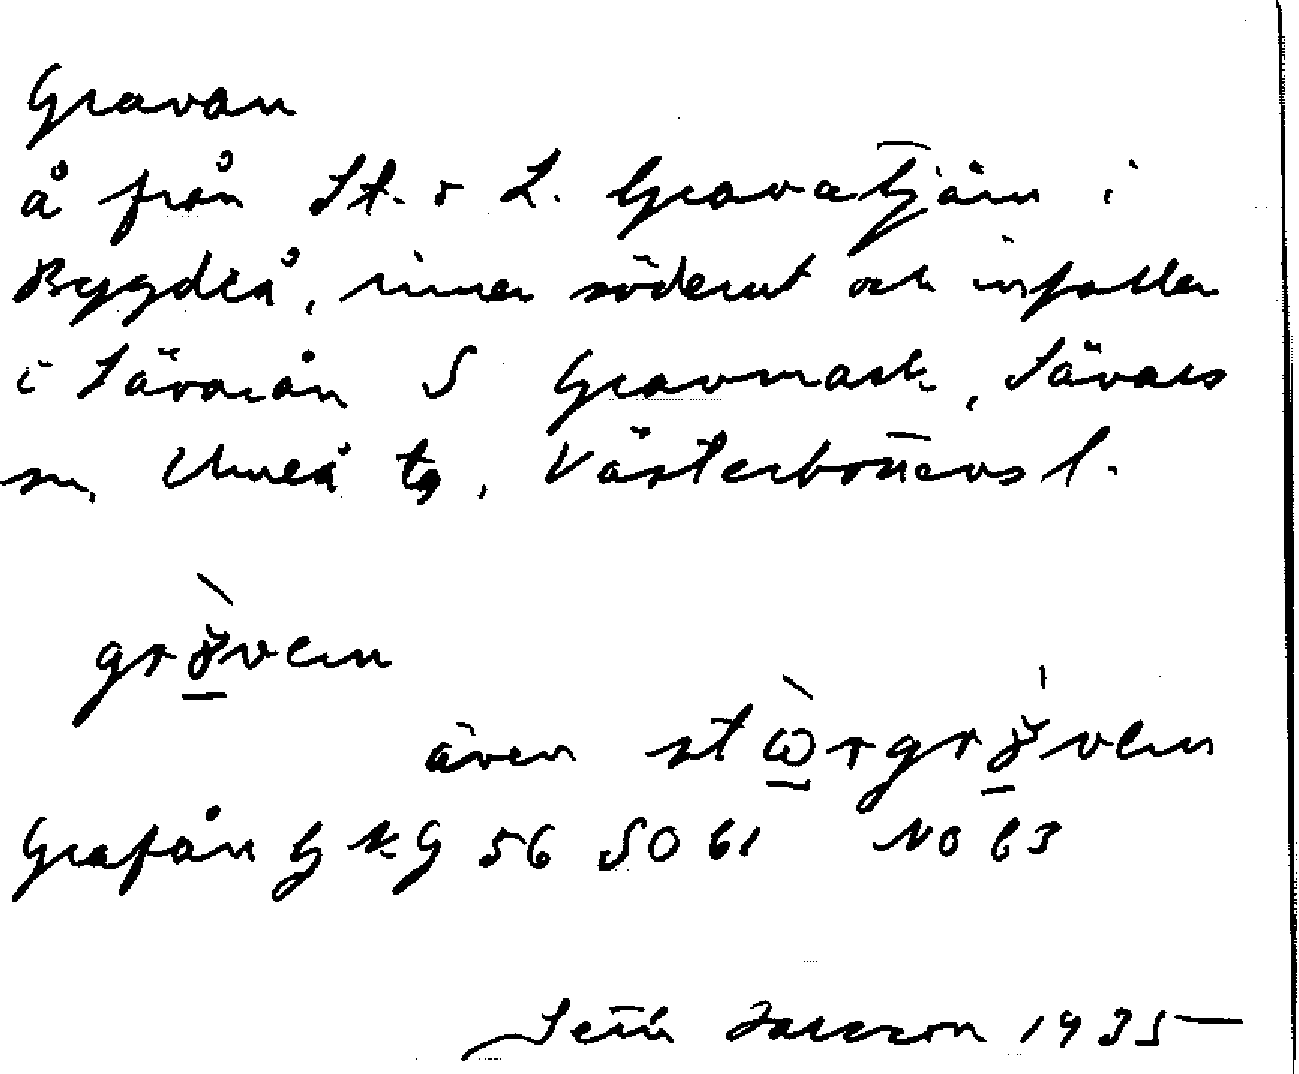 Gravån
å från St. o L. Gravatjärn i
Bygdeå, rinner söderut och infaller
i Sävarån S Gravmark, Sävars
sn, Umeå tg, Västerbottens l.
även
Grafån G K G 56 SO 61 NO 63
Larsson 1935